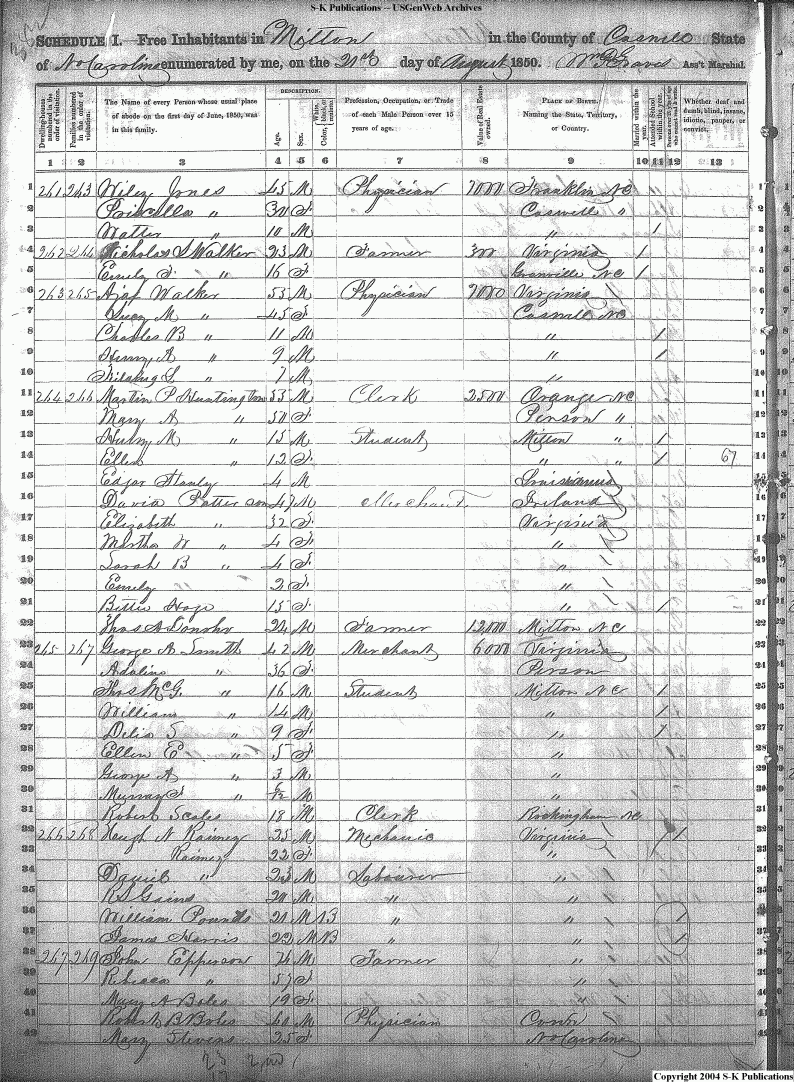 S-K Publications -- USGenWeb Archives
SCHEDULE I. Free Inhabitants in Milton in the County of Caswell State
of No Carolina enumerated by me, on the 21st day of August 1850. Ass't Marshal.
DESCRIPTION.
Dwelling-houses numbered in the order of visitation. Families numbered in the order of visitation. The Name of every Person whose usual place of abode on the first day of June, 1850, was in this family. Age. Sex. Color, White, black, or mulatto. Profession, Occupation, or Trade of each Male Person over 15 years of age. Value of Real Estate owned. PLACE OF BIRTH. Naming the State, Territory, or Country. Married within the year. Attended School within the year. Whether deaf and dumb, blind, insane, idiotic, pauper, or convict.
1 2 3 4 5 6 7 8 9 10 11 12 13
1 261 263 Wiley Jones 45 M Physician 7000 Franklin NC
2 Priscilla " 30 F Caswell "
3 Walter " 10 M " /
4 262 264 Nicholas S Walker 23 M Farmer 300 Virginia /
5 Emily F " 16 F Granville NC /
6 263 265 Walker 53 M Physician Virginia
7 M " 45 F Caswell NC
8 Charles B " 11 M " /
9 Henry A " 9 M " /
10 " 7 M "
11 264 266 Martin P Huntington 53 M Clerk 2500 Orange NC
12 Mary A " 50 F Person "
13 M " 15 M Student Milton " /
14 Ellen " 12 F " " / 67
15 Edgar Stanly 4 M Louisianna
16 David Patterson 47 M Merchant Ireland
17 Elizabeth " 32 F Virginia
18 Martha W " 4 F "
19 Sarah B " 4 F "
20 Emily " 2 F "
21 Bettie 15 F " /
22 Thos A Donoho 24 M Farmer 12,000 Milton NC
23 265 267 George A Smith 42 M Merchant 6000 Virginia
24 Adaline " 36 F Person
25 Thos McG. " 16 M Student Milton NC /
26 William " 14 M " /
27 Delia S " 9 F " /
28 Ellen E " 5 F "
29 George A " 3 M "
30 Murray F " M "
31 Robert Scales 18 M Clerk Rockingham NC
32 266 268 Hugh N Raimey 35 M Mechanic Virginia /
33 Raimey 22 F "
34 Daniel " 23 M Labourer "
35 R S Gains 20 M " "
36 William Pounds 21 M " " /
37 James Harris 22 M " " /
38 267 269 John Epperson 74 M Farmer "
39 Rebecca " 57 F "
40 Mary A Boles 19 F "
41 Robert B Boles 60 M Physician
42 Mary Stevens 25 F No Carolina
Copyright 2004 S-K Publications